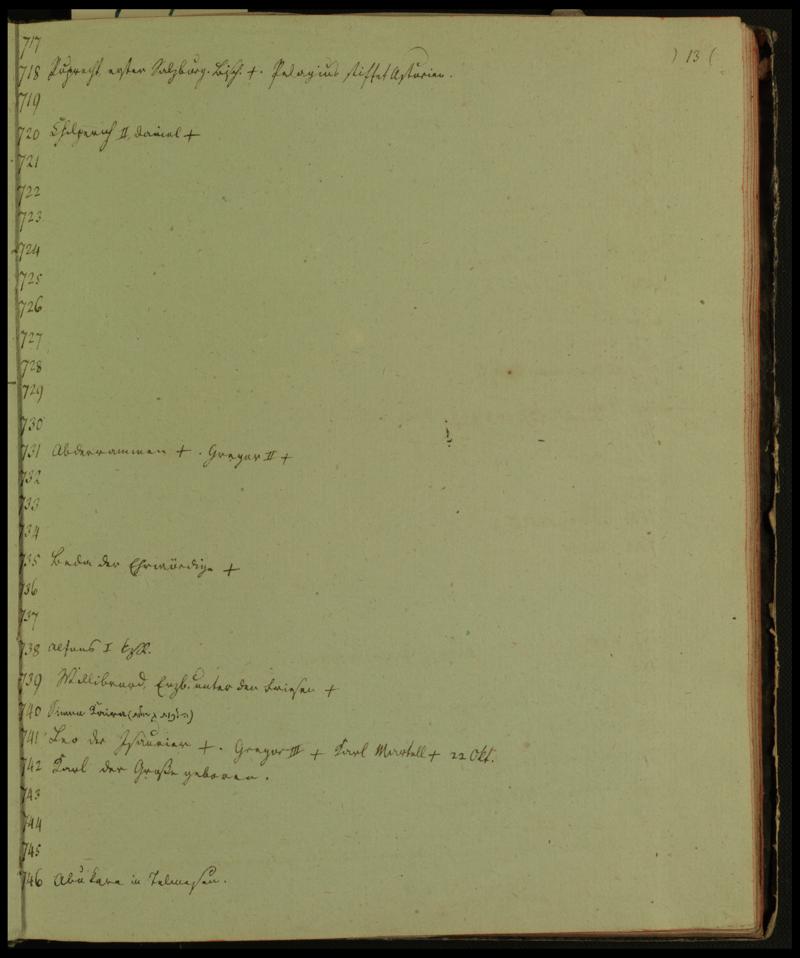 ) 13 (
717
718 Ruprecht erster Salzburg. Bisch. +. Pelagius stiftet Asturien.
719
720 Chilperich II, Daniel +
721
722
723
724
725
726
727
728
729
730
731 Abderrammen +. Gregor II +
732
733
734
735 Beda der Ehrwürdige +
736
737
738 Alfons I
739 Willibrord, Erzb. unter den Friesen +
740
741 Leo der Isaurier +. Gregor III + Karl Martell + 22 Okt.
742 Karl der Große geboren.
743
744
745
746 Abukara in